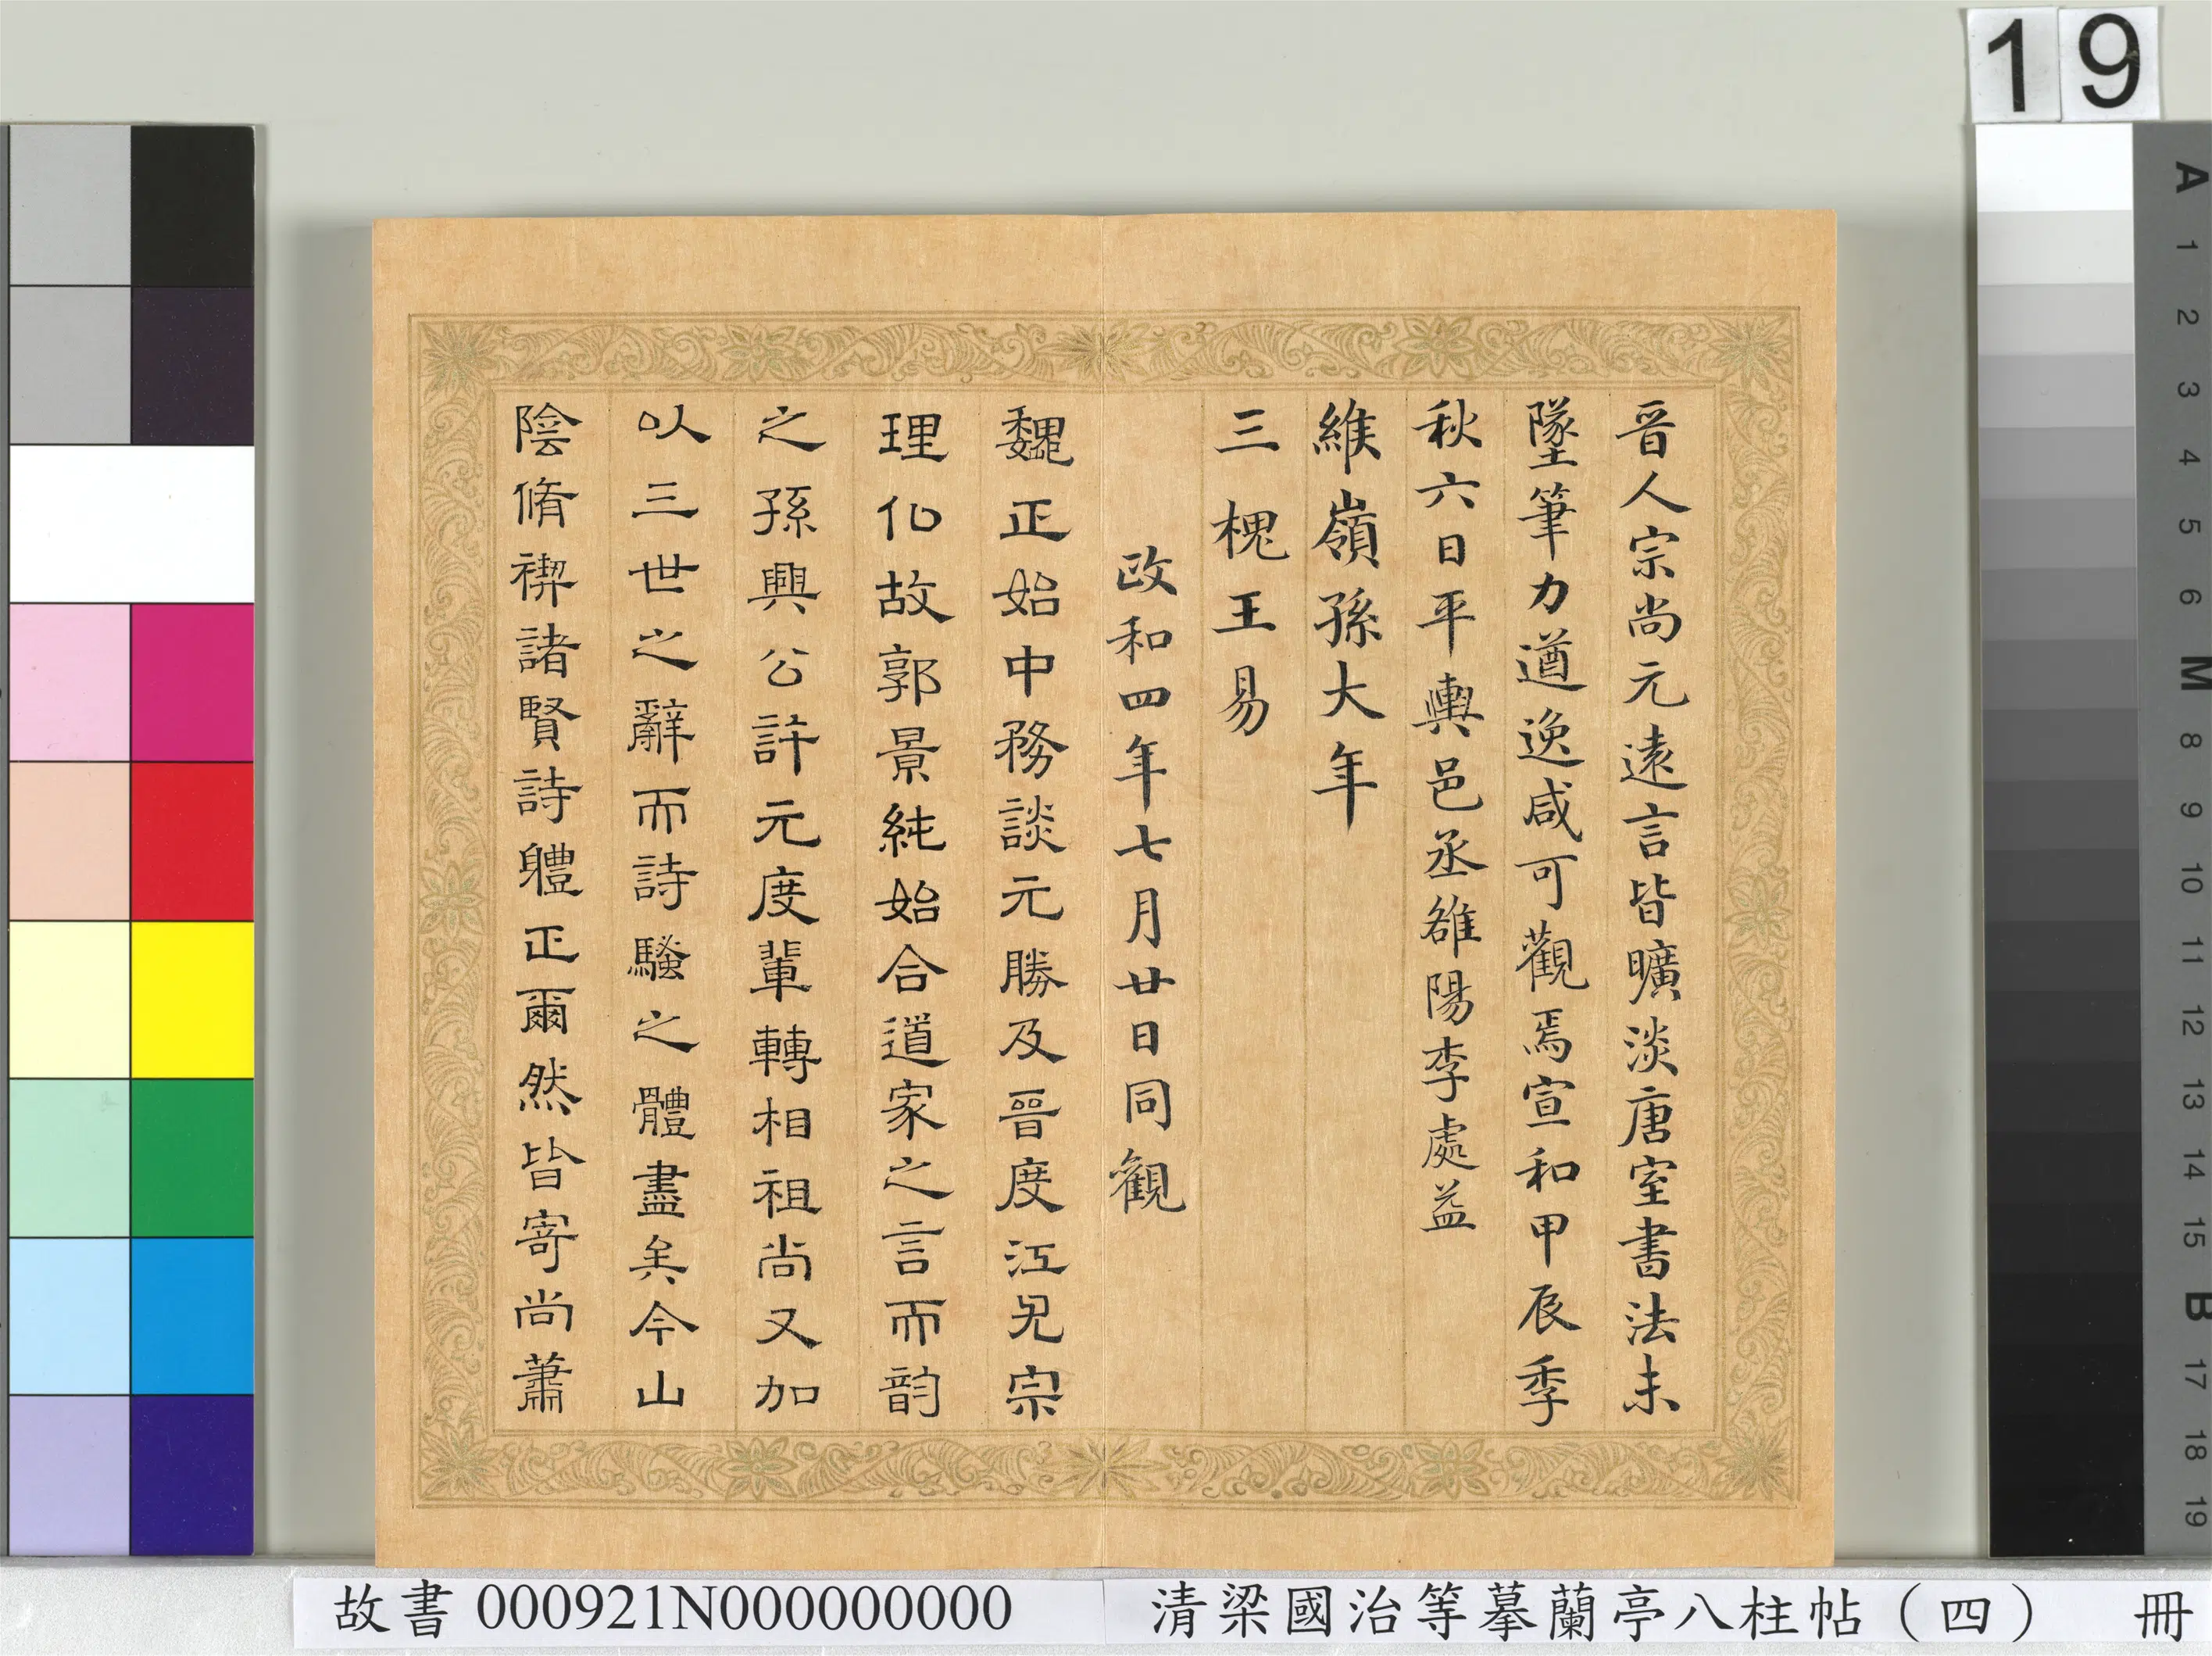 晉人宗尚元遠言皆曠淡唐室書法未
墜筆力遒逸咸可觀焉宣和甲辰季
秋六日平輿邑丞雒陽李處益
維嶺孫大年
三槐王易
政和四年七月廿日同觀
魏正始中務談元勝及晉度江兄宗
理化故郭景純始合道家之言而韵
之孫興公許元度輩轉相祖尚又加
以三世之辭而詩騷之體盡矣今山
陰脩禊諸賢詩軆正爾然皆寄尚蕭
19
A
1
2
3
4
5
6
M
8
9
10
11
12
13
14
15
B
17
18
19
故書 000921N000000000 清梁國治等摹蘭亭八柱帖（四） 冊